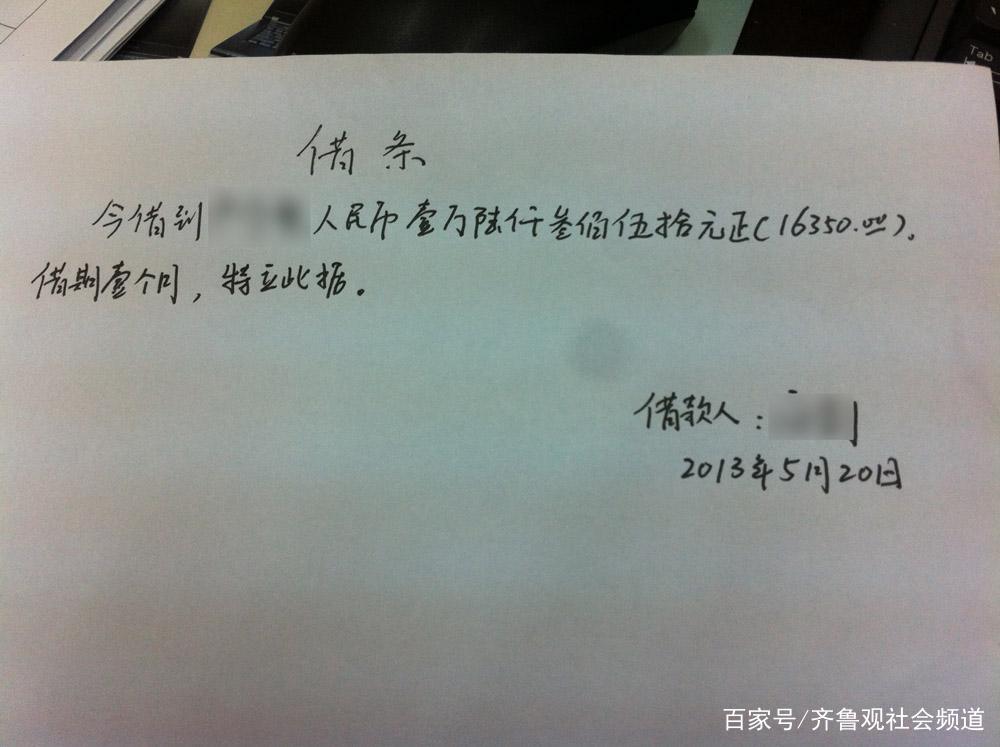 借条
今借到 人民币壹万陆仟叁佰伍拾元正(16350.00)。
借期壹个月，特立此据。
借款人：
2013年5月20日
Tab
百家号/齐鲁观社会频道